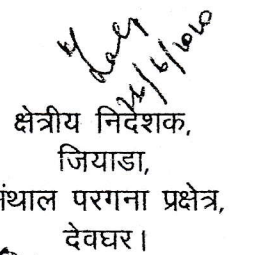 26/6/2020
क्षेत्रीय निदेशक,
जियाडा,
संथाल परगना प्रक्षेत्र,
देवघर।